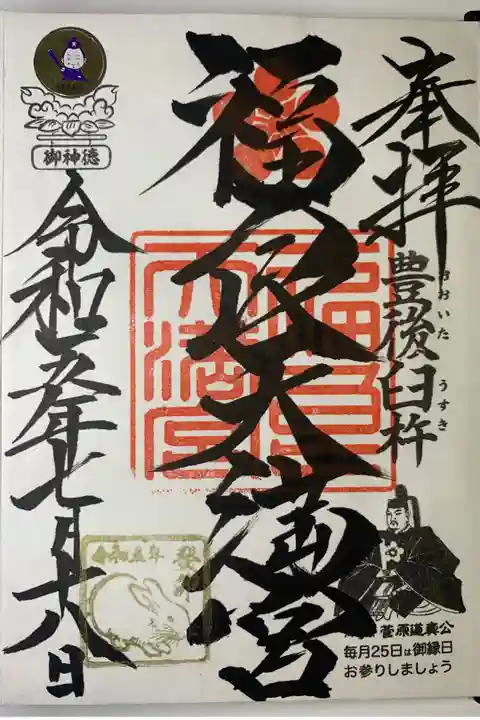 奉拝
豊後臼杵
おおいた うすき
福良天満宮
令和五年七月十八日
御神徳
令和五年
菅原道真公
毎月25日は御縁日
お参りしましょう